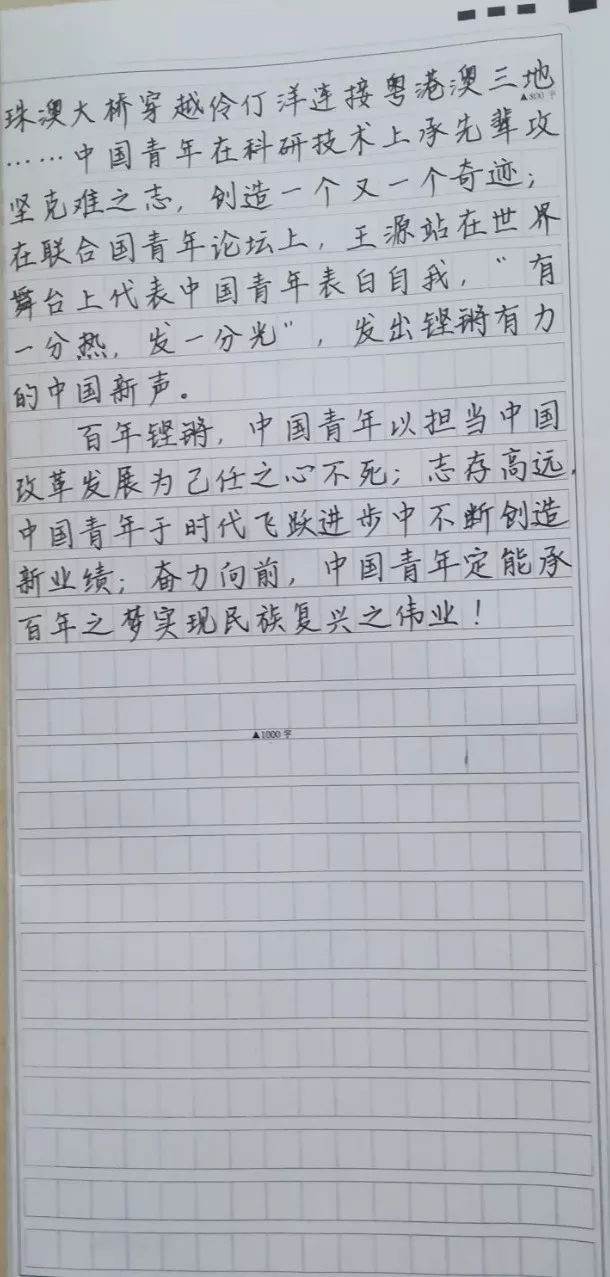 珠澳大桥穿越伶仃洋连接粤港澳三地
▲800字
……中国青年在科研技术上承先辈攻
坚克难之志，创造一个又一个奇迹；
在联合国青年论坛上，王源站在世界
舞台上代表中国青年表白自我，“有
一分热，发一分光”，发出铿锵有力
的中国新声。
百年铿锵，中国青年以担当中国
改革发展为己任之心不死；志存高远，
中国青年于时代飞跃进步中不断创造
新业绩；奋力向前，中国青年定能承
百年之梦实现民族复兴之伟业！
▲1000字